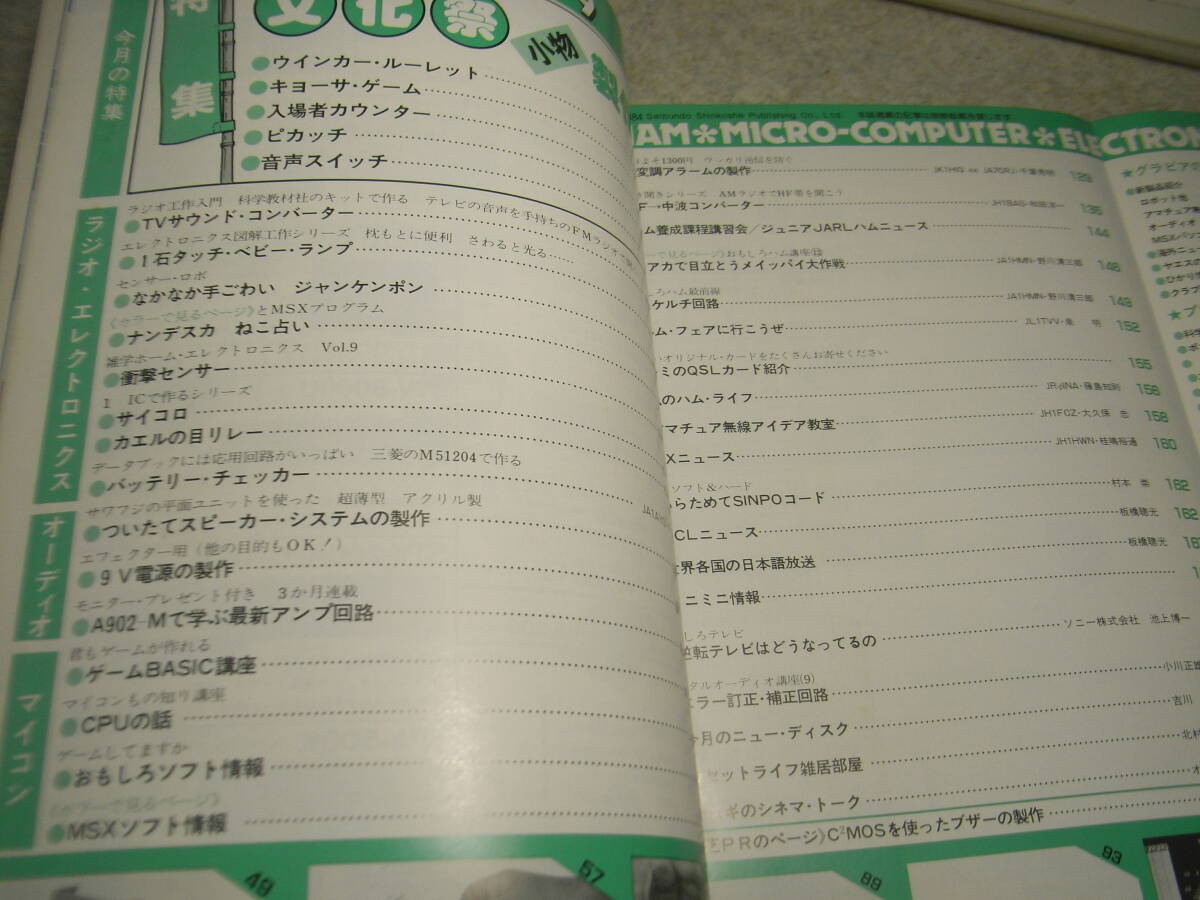 特集
文化祭
小物
今月の特集
●ウインカー・ルーレット
●キョーサ・ゲーム
●入場者カウンター
●ピカッチ
●音声スイッチ
ラジオ・エレクトロニクス
ラジオ工作入門 科学教材社のキットで作る テレビの音声を手持ちのFMラジオで
●TVサウンド・コンバーター
エレクトロニクス図解工作シリーズ 枕もとに便利 さわると光る……
●1石タッチ・ベビー・ランプ
センサー・ロボ
●なかなか手ごわい ジャンケンポン
《カラーで見るページ》とMSXプログラム
●ナンデスカ ねこ占い
雑学ホーム・エレクトロニクス Vol.9
●衝撃センサー
1 ICで作るシリーズ
●サイコロ
●カエルの目リレー
データブックには応用回路がいっぱい 三菱のM51204で作る
●バッテリー・チェッカー
オーディオ
サワフジの平面ユニットを使った 超薄型 アクリル製
●ついたてスピーカー・システムの製作
エフェクター用(他の目的もOK!)
●9V電源の製作
モニター・プレゼント付き 3か月連載
●A902-Mで学ぶ最新アンプ回路
マイコン
君もゲームが作れる
●ゲームBASIC講座
マイコンもの知り講座
●CPUの話
ゲームしてますか
●おもしろソフト情報
《カラーで見るページ》
●MSXソフト情報
49
57
84 Seibundo Shinkosha Publishing Co., Ltd.
AM＊MICRO-COMPUTER＊ELECTRON
よそ1300円 ウッカリ送信を防ぐ
変調アラームの製作 129
き聞きシリーズ AMラジオでHF帯を聞こう
F→中波コンバーター 135
ム養成課程講習会/ジュニアJARLハムニュース 144
ーで見るページ》おもしろハム講座
アカで目立とうメイッパイ大作戦 JA1HMN・野川清三郎 146
しろハム最前線
ケルチ回路 JA1HMN・野川清三郎 149
ム・フェアに行こうぜ JL1TVV・泉 明 152
いオリジナル・カードをたくさんお寄せください
ミのQSLカード紹介 155
のハム・ライフ 156
マチュア無線アイデア教室 JH1FCZ・大久保 忠 158
Xニュース JH1HWN・桂嶋裕通 160
ソフト&ハード
らためてSINPOコード 村本 崇 162
CLニュース 板橋聰光 162
世界各国の日本語放送 板橋聰光 16
ミニ情報
しろテレビ
逆転テレビはどうなってるの ソニー株式会社 池上博一
タルオーディオ講座(9)
ラー訂正・補正回路 小川正雄
今月のニュー・ディスク 吉川
セットライフ雑居部屋 北村
ギのシネマ・トーク
PRのページ》C²MOSを使ったブザーの製作
89
93
★グラビアの
●新製品紹介
ロボット他
アマチュア
オーディオ
MSXパソ
●海外ニュー
●ヤエスの
●ひかり
●クラブ
★プ
●科学